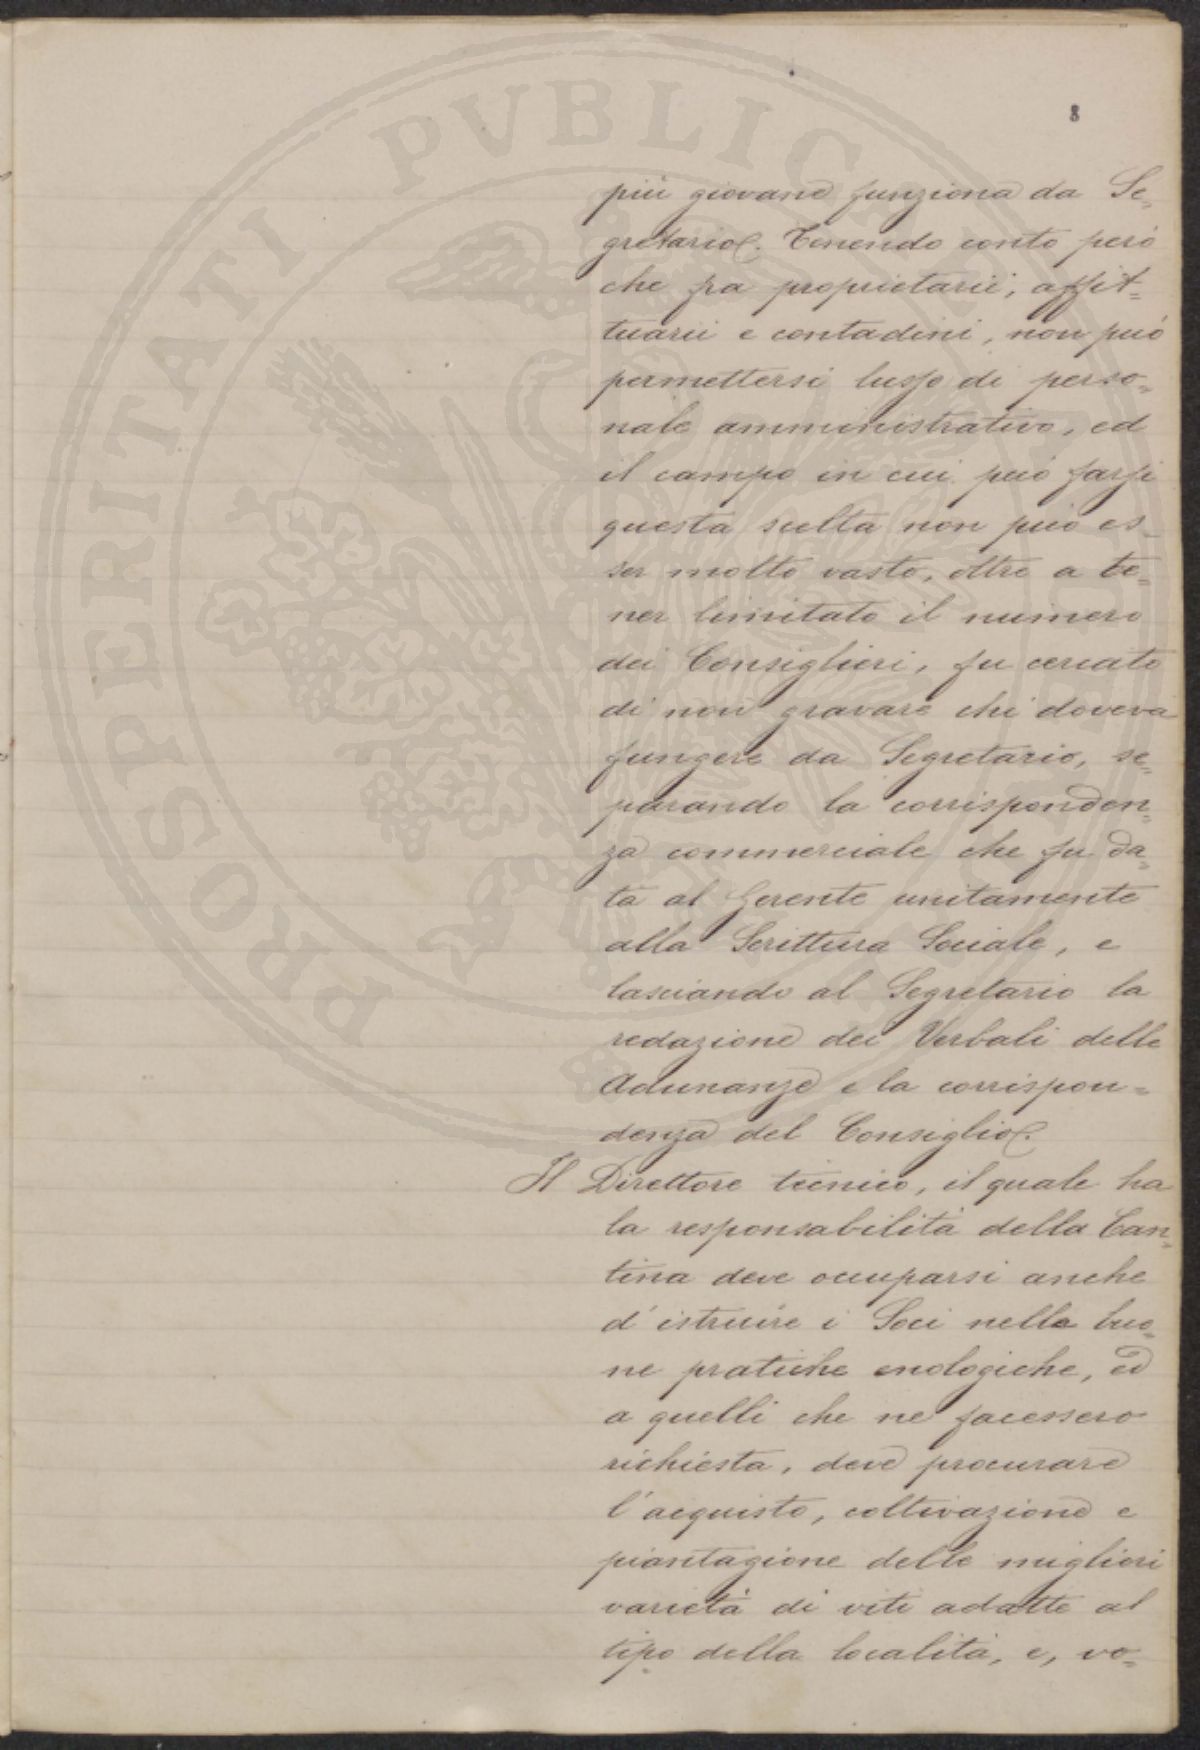 PROSPERITATI PVBLICAE
8
più giovane funziona da Se=
gretario. Tenendo conto però
che fra proprietarii, affit=
tuarii e contadini, non può
permettersi lusso di perso=
nale amministrativo, ed
il campo in cui può farsi
questa scelta non può es=
ser molto vasto, oltre a te=
ner limitato il numero
dei Consiglieri, fu cercato
di non gravare chi doveva
fungere da Segretario, se=
parando la corrisponden=
za commerciale che fu da=
ta al Gerente unitamente
alla Scrittura Sociale, e
lasciando al Segretario la
redazione dei Verbali delle
Adunanze e la corrispon=
denza del Consiglio.
Il Direttore tecnico, il quale ha
la responsabilità della Can=
tina deve occuparsi anche
d'istruire i Soci nelle buo=
ne pratiche enologiche, ed
a quelli che ne facessero
richiesta, deve procurare
l'acquisto, coltivazione e
piantagione delle migliori
varietà di viti adatte al
tipo della località, e, vo=